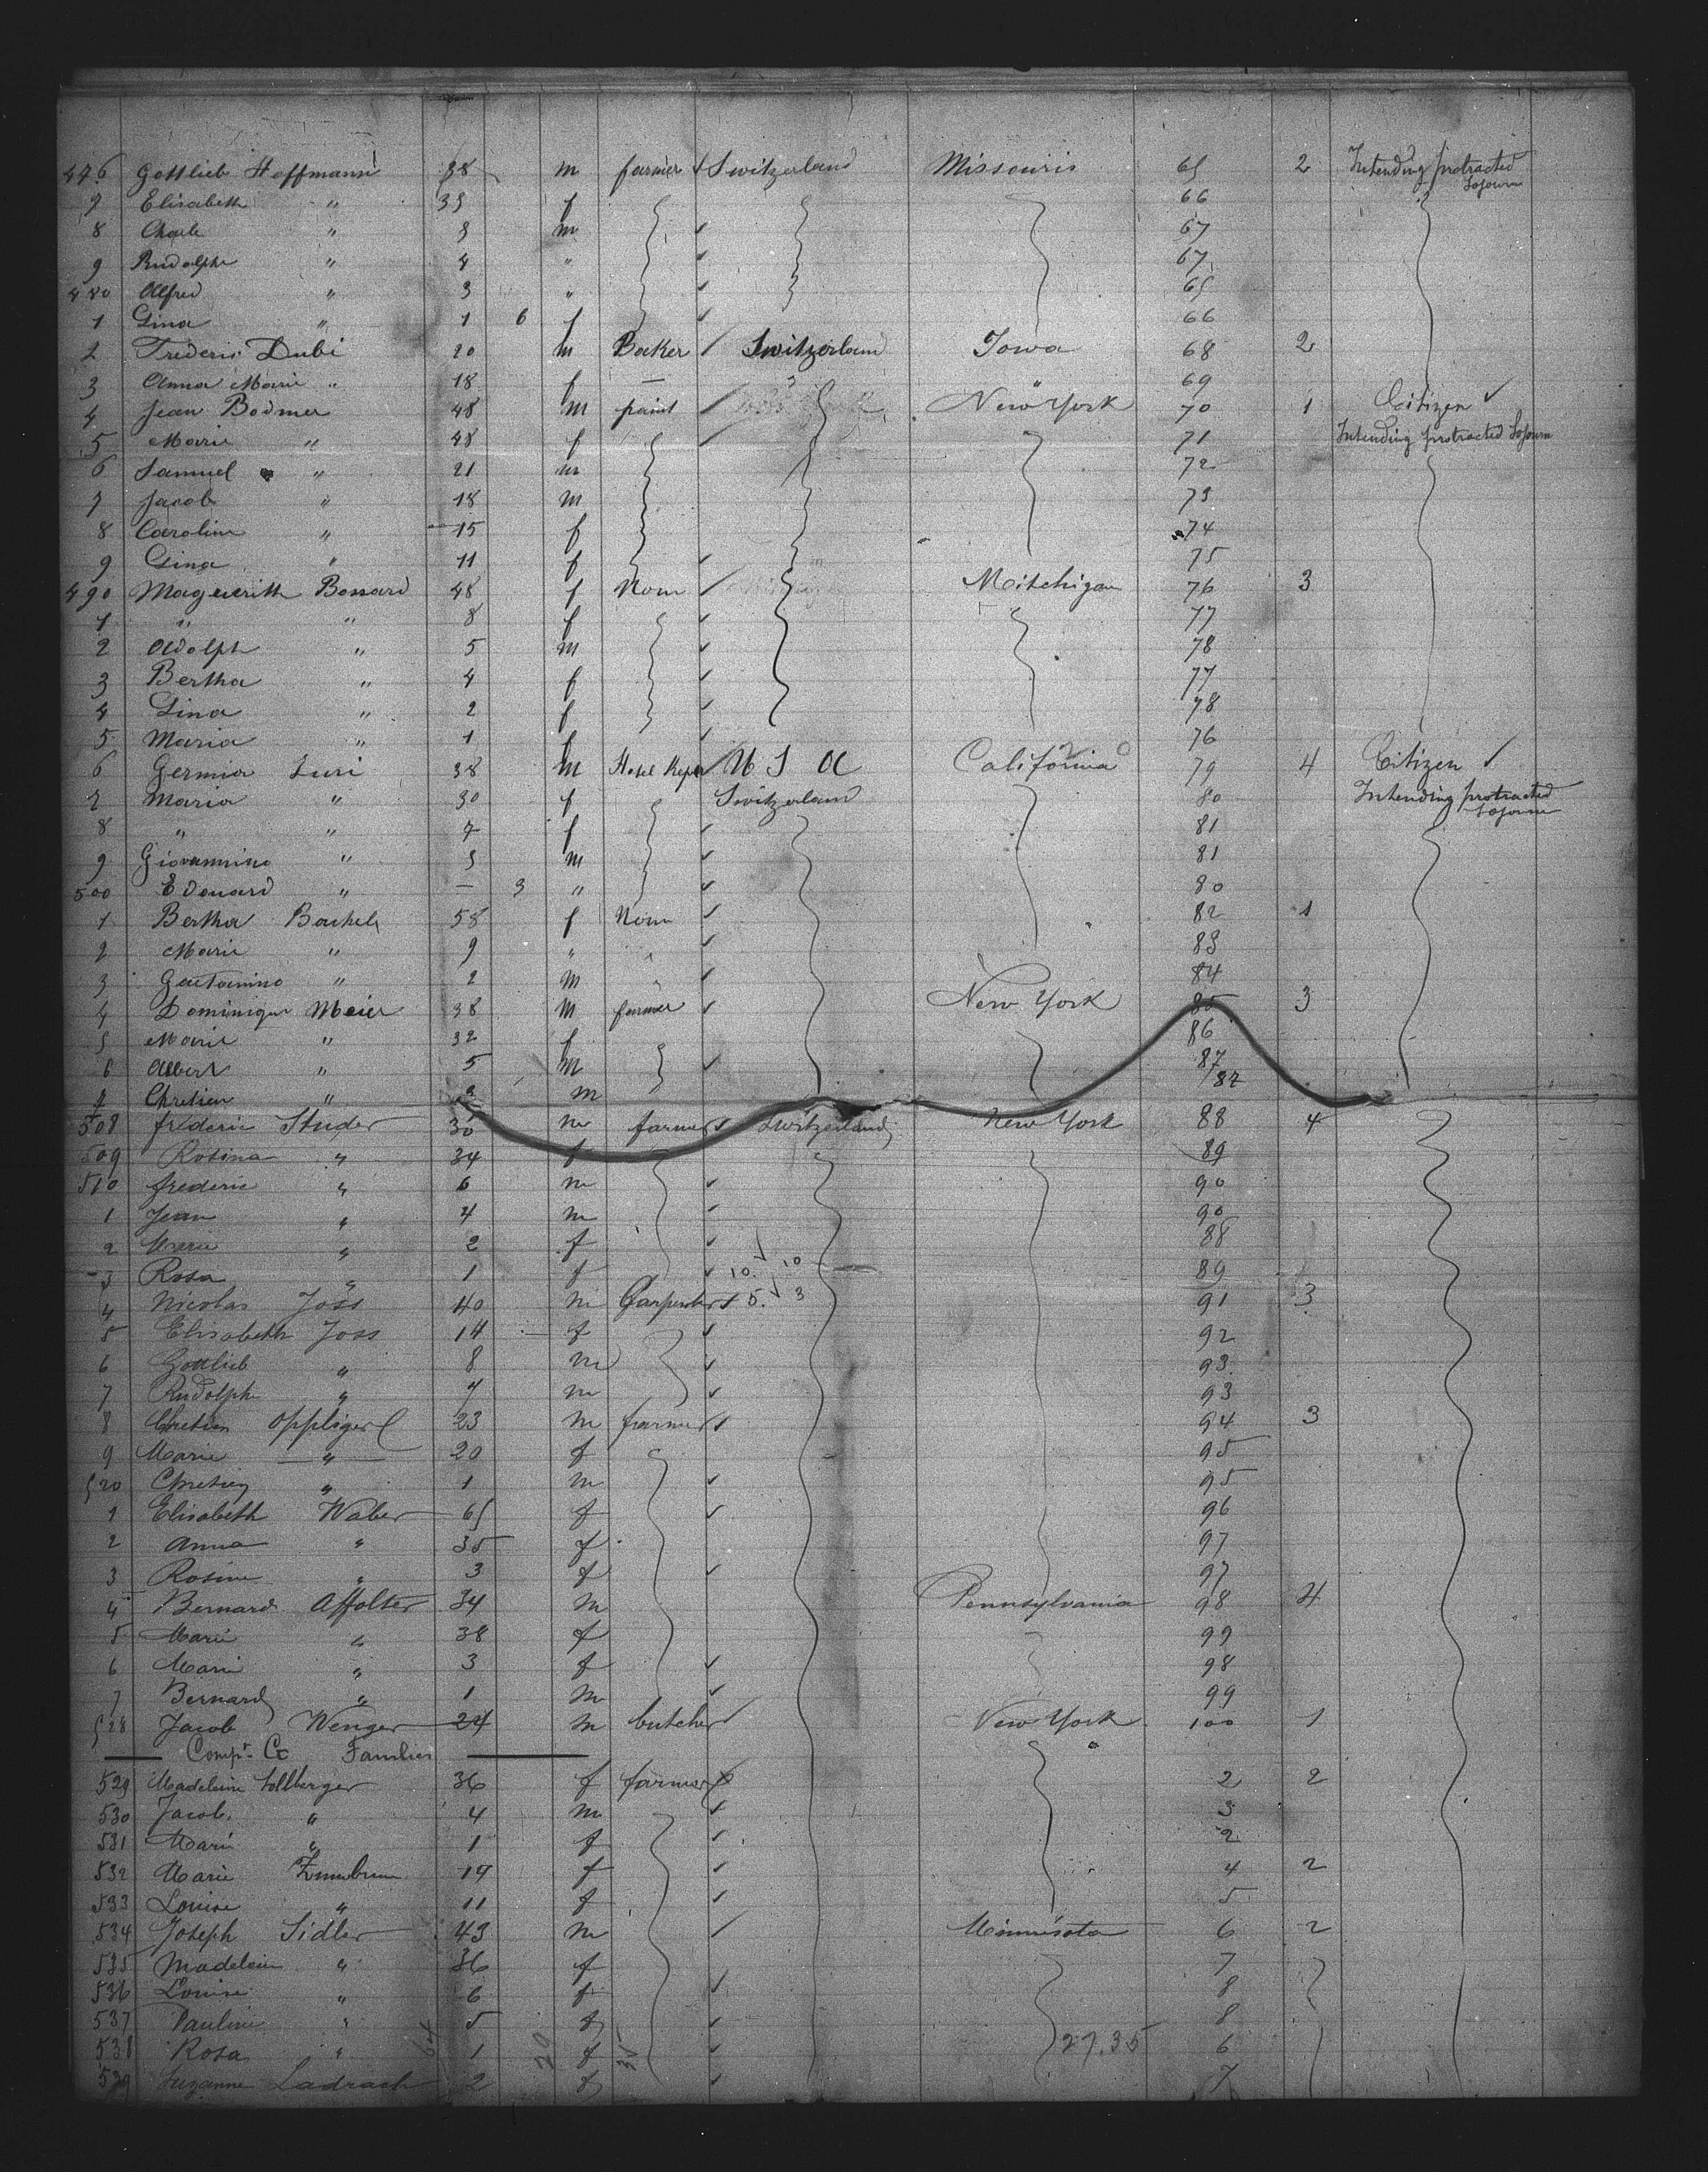 476 Gottlieb Hoffmann 38 m farmer Switzerland Missouris 65 2 Intending protracted Sojourn
7 Elisabeth " 35 f 66
8 Charle " 9 m 67
9 Rudolphe " 4 " 67
480 Alfred " 3 " 65
1 Lina " 1 6 f 66
2 Frederic Dubi 20 m Baker Switzerland Iowa 68 2
3 Anna Marie " 18 f — " 69
4 Jean Bodmer 48 m paint New York 70 1 Citizen
5 Marie " 48 f 71 Intending protracted Sojourn
6 Samuel " 21 m 72
7 Jacob " 18 m 73
8 Caroline " 15 f 74
9 Lina " 11 f 75
490 Maguerith Bossard 48 f None Mitchigan 76 3
1 " " 8 f 77
2 Adolph " 5 m 78
3 Bertha " 4 f 77
4 Lina " 2 f 78
5 Maria " 1 f 76
6 Germia Luri 38 m Hotel Keper U S A California 79 4 Citizen
7 Maria " 30 f Switzerland 80 Intending protracted Sojourn
8 " " 7 f 81
9 Giovannino " 5 m 81
500 Edouard " — 3 " 80
1 Bertha 58 f None 82 1
2 Marie " 9 " " 83
3 Gaetanino " 2 m " 84
4 Dominique Meier 38 m farmer New York 85 3
5 Marie " 32 f 86
6 Albert " 5 m 87
7 Chretien " m 87
508 frederic Studer 30 m farmer Switzerland New York 88 4
509 Rosina " 34 f 89
510 frederic " 6 m 90
1 Jean " 4 m 90
2 Marie " 2 f 88
3 Rosa " 1 f 10. 10 89
4 Nicolas Joss 40 m Carpenter 5. 3 91 3
5 Elisabeth Joss 14 f 92
6 Gottlieb " 8 m 93
7 Rudolph " 7 m 93
8 Chretien Oppliger 23 m farmer 94 3
9 Marie " 20 f 95
520 Chretien " 1 m 95
1 Elisabeth Waber 65 f 96
2 Anna " 35 f 97
3 Rosine " 3 f 97
4 Bernard Affolter 34 m Pennsylvania 98 4
5 Marie " 38 f 99
6 Marie " 3 f 98
7 Bernard " 1 m 99
528 Jacob Wenger 24 m butcher New York 100 1
Compt. C Families
529 Madeleine Sollberger 36 f farmer 2 2
530 Jacob " 4 m 3
531 Marie " 1 f 2
532 Marie 14 f 4 2
533 Louise " 11 f 5
534 Joseph Sidler 43 m Minnesota 6 2
535 Madeleine " 36 f 7
536 Louise " 6 f 8
537 Pauline " 5 f 8
538 Rosa " 1 f 27.35 6
539 Suzanne Ladrach 2 f 7